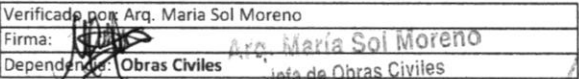 Verificado por: Arq. Maria Sol Moreno
Firma:
Arq. María Sol Moreno
Dependencia: Obras Civiles
Jefa de Obras Civiles